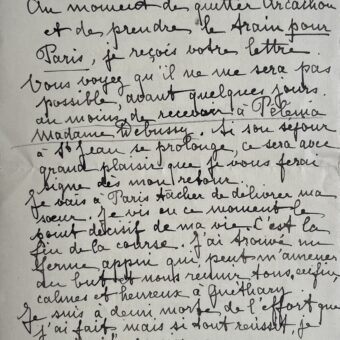 Au moment de quitter Arcachon
et de prendre le train pour
Paris, je reçois votre lettre.
Vous voyez qu'il ne me sera pas
possible, avant quelques jours
au moins de recevoir à Pélénia
madame Debussy. Si son séjour
à St Jean se prolonge, ce sera avec
grand plaisir que je vous ferai
signe dès mon retour.
Je vais à Paris tâcher de délivrer ma
sœur. Je vis en ce moment le
point décisif de ma vie. C'est la
fin de la course. J'ai trouvé un
ferme appui qui peut m'amener
au but et nous réunir tous, enfin,
calmes et heureux à Guéthary
Je suis à demi morte de l'effort que
j'ai fait mais si tout réussit, je